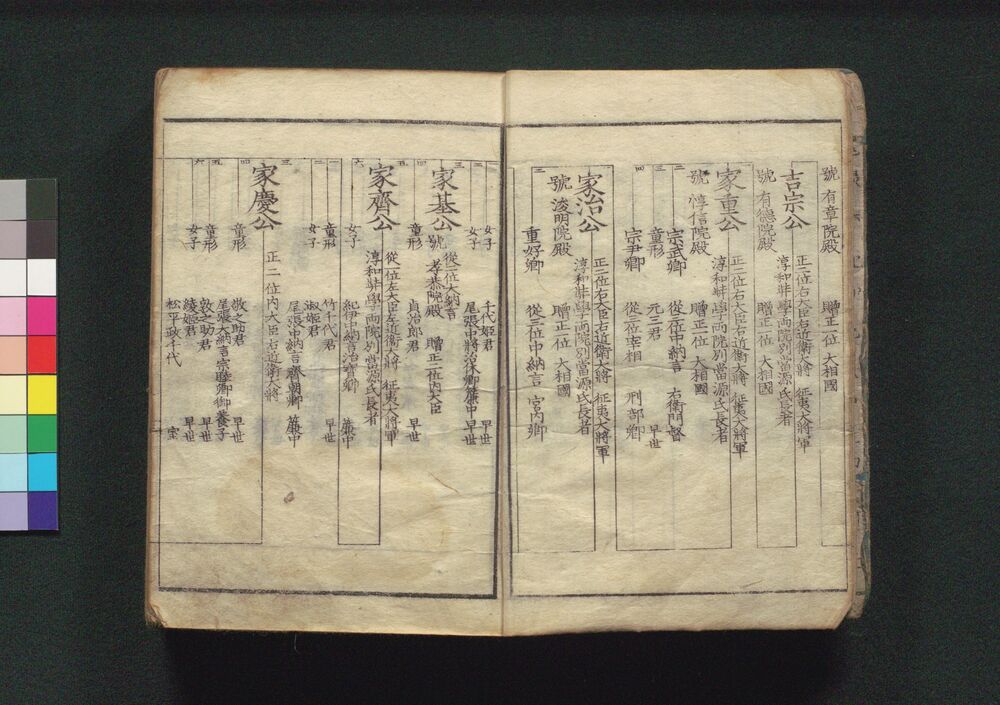 號 有章院殿 贈正一位 大相國
吉宗公 正二位右大臣右近衛大將 征夷大將軍
淳和弉學両院別當源氏長者
號 有德院殿 贈正一位 大相國
家重公 正二位右大臣右近衛大將 征夷大將軍
淳和弉學両院別當源氏長者
號 惇信院殿 贈正一位 大相國
二 宗武卿 從三位中納言 右衛門督
三 童形 元三君 早世
四 宗尹卿 從三位宰相 刑部卿
家治公 正二位右大臣右近衛大將 征夷大將軍
淳和弉學両院別當源氏長者
號 浚明院殿 贈正一位 大相國
二 重好卿 從三位中納言 宮内卿
女子 千代姫君 早世
二 女子 尾張中將治休卿簾中 早世
三 家基公 從二位大納言
號 孝恭院殿 贈正二位内大臣
四 童形 貞治郎君 早世
五 家齊公 從一位左大臣左近衛大將 征夷大將軍
淳和弉學両院別當源氏長者
六 女子 紀伊中納言治寶卿 簾中
一 童形 竹千代君 早世
二 女子 淑姫君
尾張中納言齊朝卿 簾中
三 家慶公 正二位内大臣右近衛大將
四 童形 敬之助君 早世
尾張大納言宗睦卿御養子
五 童形 敦之助君 早世
六 女子 綾姫君 早世
松平政千代 室